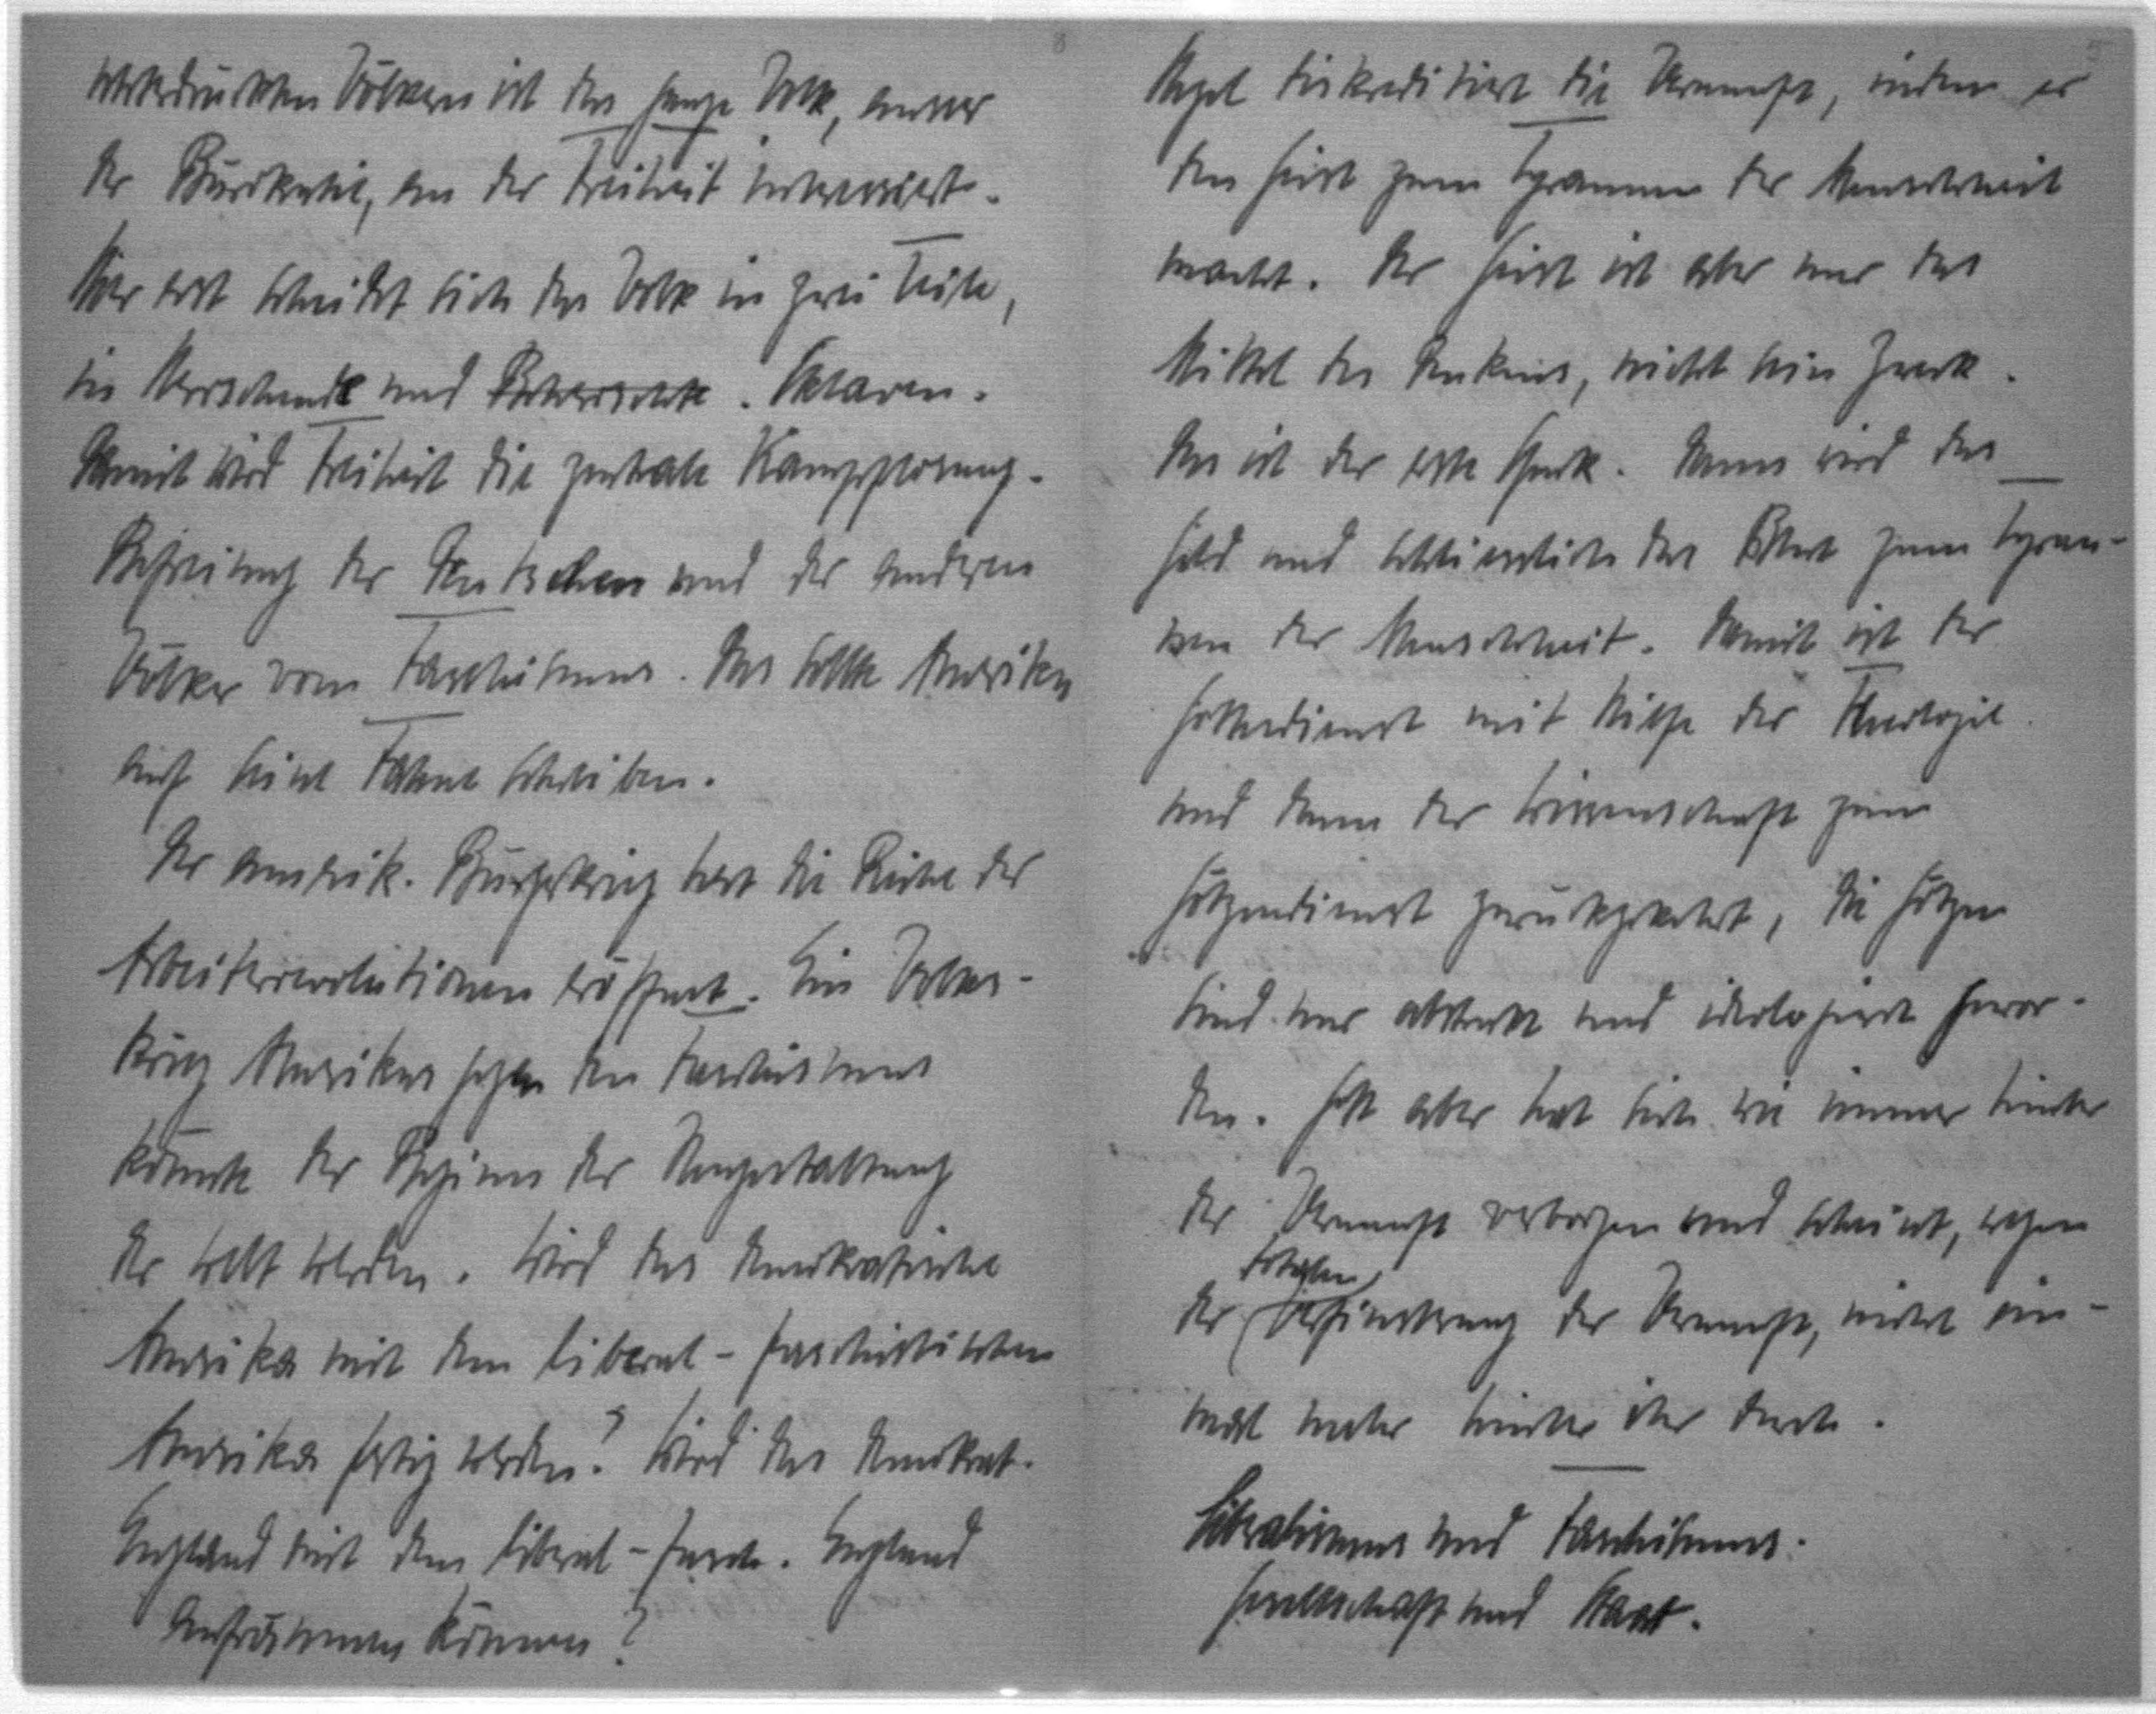 unterdrückten Völkern ist das ganze Volk, ausser
der Bürokratie, an der Freiheit interessiert.
Hier erst scheidet sich das Volk in zwei Teile,
in Herrschende und Beherrschte. Sklaven.
Damit wird Freiheit die zentrale Kampflosung.
Befreiung der Deutschen und der anderen
Völker vom Faschismus. Das sollte Amerika
auf seine Fahne schreiben.
Der amerik. Bürgerkrieg hat die Reihe der
Arbeiterrevolutionen eröffnet. Ein Volks-
krieg Amerikas gegen den Faschismus
könnte der Beginn der Neugestaltung
der Welt werden. Wird das demokratische
Amerika mit dem liberal-faschistischen
Amerika fertig werden? Wird das demokrat.
England mit dem liberal-fasch. England
aufräumen können?
Hegel diskreditiert die Vernunft, indem er
den Geist zum Tyrannen der Menschheit
macht. Der Geist ist aber nur das
Mittel des Denkens, nicht sein Zweck.
Das ist der erste Spuk. Dann wird das
Geld und schliesslich das Blut zum Tyran-
nen der Menschheit. Damit ist der
Gottesdienst mit Hilfe der Theologie
und dann der Wissenschaft zum
Götzendienst zurückgekehrt, die Götzen
sind nur abstrakt und ideologisch gewor-
den. Gott aber hat sich wie immer hinter
der Vernunft verborgen und scheint, wegen
totalen
der Verfinsterung der Vernunft, nicht ein-
mal mehr hinter ihr durch.
Liberalismus und Faschismus.
Gesellschaft und Staat.